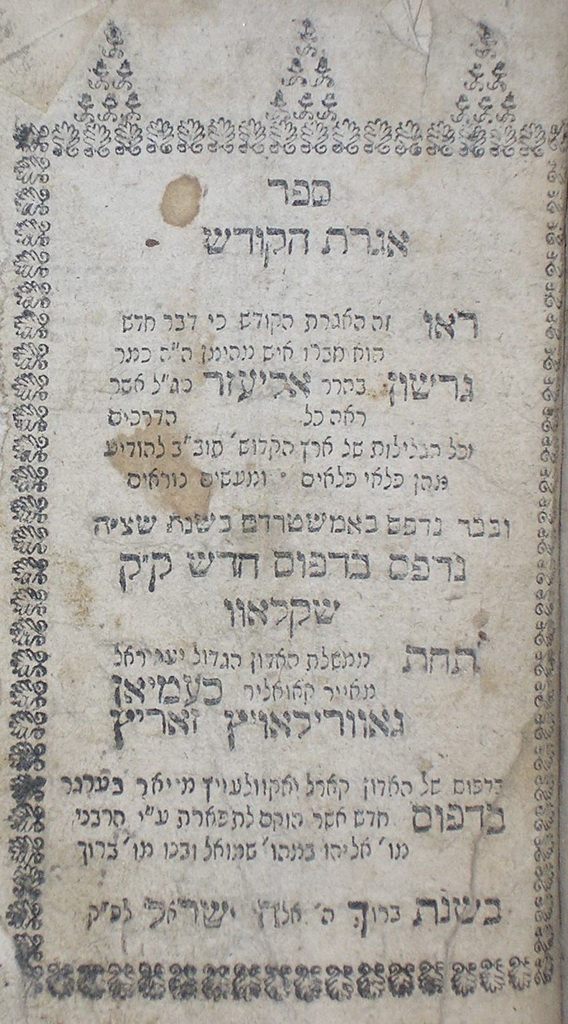 ספר
אגרת הקודש
ראו זה האגרת הקודש כי דבר חדש
הוא חברו איש מהימן ה"ה כמר
גרשון בהרר אליעזר סג"ל אשר
ראה כל הדרכים
וכל הגלילות של ארץ הקדוש' תוב"ב להודיע
מהן פלאי פלאים ומעשים נוראים
וכבר נדפס באמשטרדם בשנת שצ"ה
נדפס בדפוס חדש ק"ק
שקלאוו
תחת ממשלת האדון הגדול
מאייר קאוואליר סעמיאן
גאוורילאוויץ זאריץ
בדפוס של האדון קארל יאקוולעוויץ מייאר בערגר
בדפוס חדש אשר הוקם לתפארת ע"י הרבני
מו' אליהו במהו' שמואל ובנו מו' ברוך
בשנת ברוך ה' אלהי ישראל לפ"ק